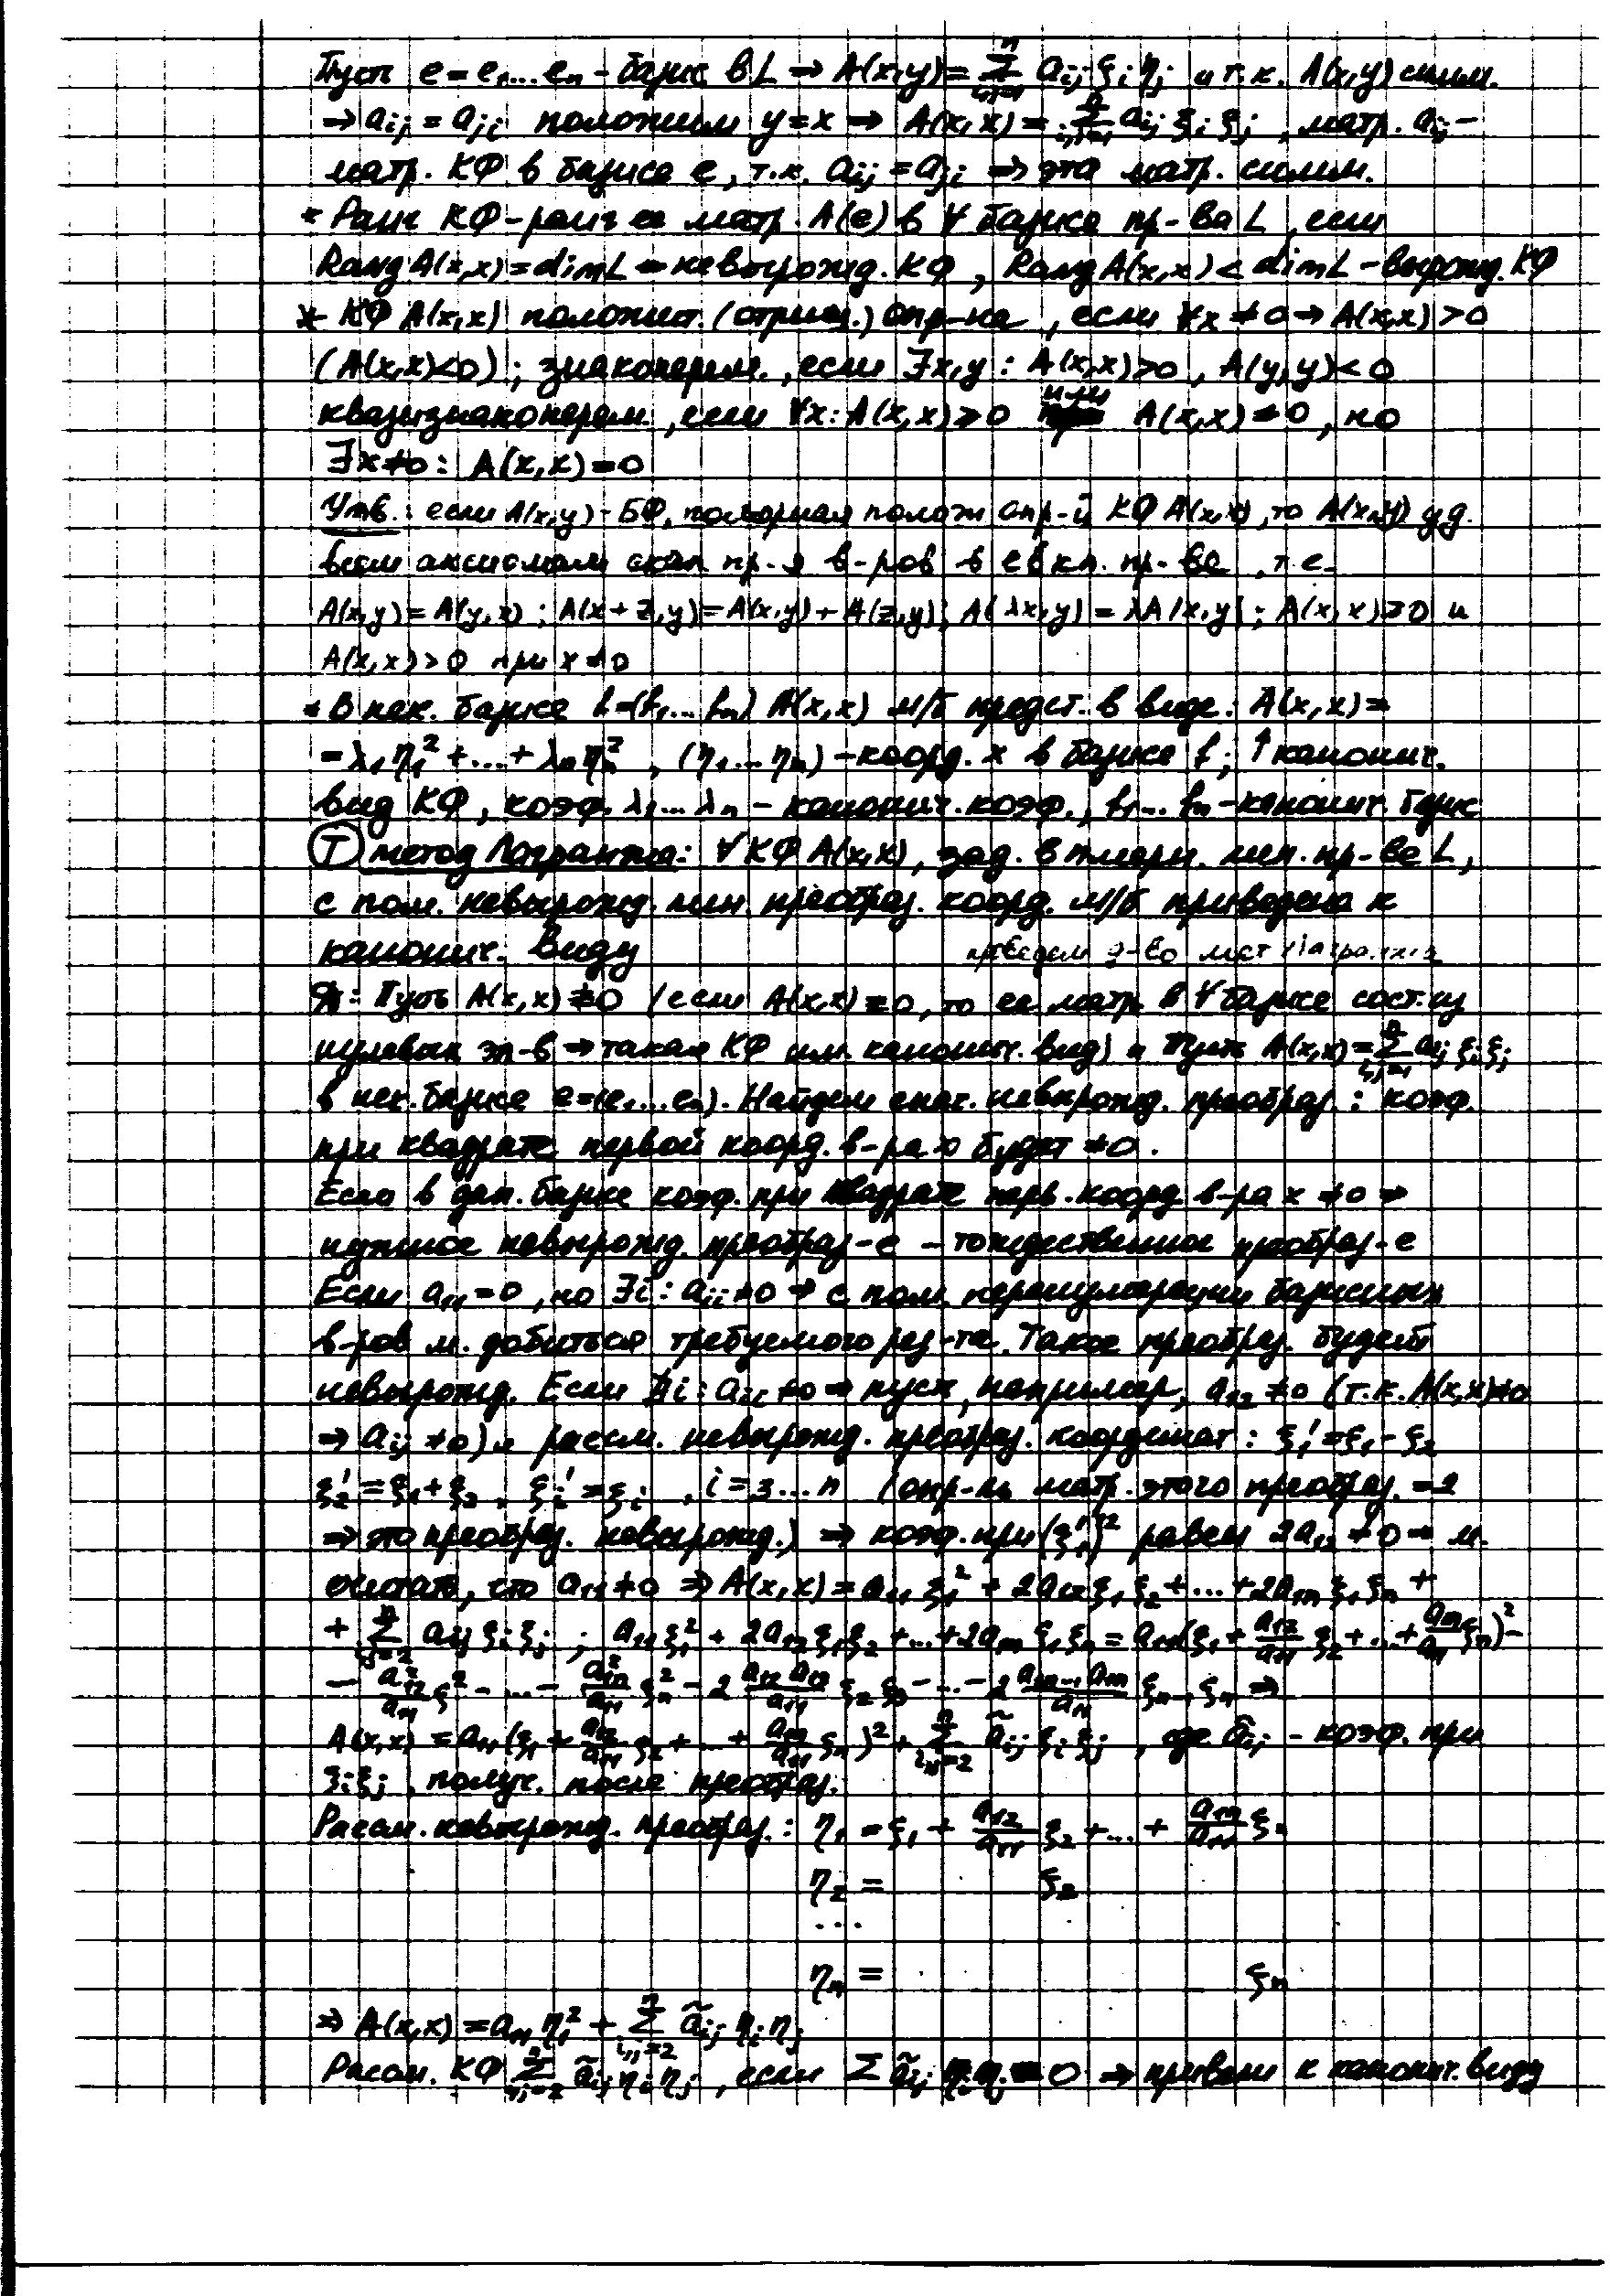 Пусть e = e₁...eₙ - базис в L ⇒ A(x,y) = Σⁿᵢ,ⱼ₌₁ aᵢⱼ ξᵢ ηⱼ и т.к. A(x,y) симм.
⇒ aᵢⱼ = aⱼᵢ положим y = x ⇒ A(x,x) = Σⁿᵢ,ⱼ₌₁ aᵢⱼ ξᵢ ξⱼ, матр. aᵢⱼ -
матр. КФ в базисе e, т.к. aᵢⱼ = aⱼᵢ ⇒ эта матр. симм.
* Ранг КФ - ранг ее матр. A(e) в ∀ базисе пр-ва L, если
Rang A(x,x) = dim L - невырожд. КФ, Rang A(x,x) < dim L - вырожд. КФ
* КФ A(x,x) положит. (отриц.) опр-на, если ∀x ≠ 0 ⇒ A(x,x) > 0
(A(x,x) < 0); знакоперем., если ∃x,y: A(x,x) > 0, A(y,y) < 0
квазизнакоперем., если ∀x: A(x,x) ⩾ 0 или A(x,x) ⩽ 0, но
∃x ≠ 0: A(x,x) = 0
Утв.: если A(x,y) - БФ, полярная полож опр-й КФ A(x,x), то A(x,y) уд.
всем аксиомам скал пр-я в-ров в евкл. пр-ве, т.е.
A(x,y) = A(y,x); A(x+z,y) = A(x,y) + A(z,y); A(λx,y) = λA(x,y); A(x,x) ⩾ 0 и
A(x,x) > 0 при x ≠ 0
* В нек. базисе f = (f₁...fₙ) A(x,x) м/б предст. в виде: A(x,x) =
= λ₁η₁² + ... + λₙηₙ², (η₁...ηₙ) - коорд. x в базисе f; ↑ канонич.
вид КФ, коэф. λ₁...λₙ - канонич. коэф., f₁...fₙ - канонич. базис
(Т) метод Лагранжа: ∀ КФ A(x,x), зад. в n-мерн. лин. пр-ве L,
с пом. невырожд. лин. преобраз. коорд. м/б приведена к
канонич. виду проведем д-во мет Лагранжа
Д: Пусть A(x,x) ≢ 0 (если A(x,x) ≡ 0, то ее матр. в ∀ базисе сост. из
нулевых эл-в ⇒ такая КФ им. канонич. вид) и Пусть A(x,x) = Σⁿᵢ,ⱼ₌₁ aᵢⱼ ξᵢ ξⱼ
в нек. базисе e = (e₁...eₙ). Найдем снач. невырожд. преобраз.: коэф.
при квадрате первой коорд. в-ра x будет ≠ 0.
Если в дан. базисе коэф. при квадрате перв. коорд в-ра x ≠ 0 ⇒
нужное невырожд. преобраз-е - тождественное преобраз-е
Если a₁₁ = 0, но ∃i: aᵢᵢ ≠ 0 ⇒ с пом. перенумерации базисных
в-ров м. добиться требуемого рез-та. Такое преобраз. будет
невырожд. Если ∄i: aᵢᵢ ≠ 0 ⇒ пусть, например, a₁₂ ≠ 0 (т.к. A(x,x) ≢ 0
⇒ aᵢⱼ ≠ 0) и рассм. невырожд. преобраз. координат: ξ₁' = ξ₁ - ξ₂
ξ₂' = ξ₁ + ξ₂, ξᵢ' = ξᵢ, i = 3...n (опр-ль матр. этого преобраз. = 2
⇒ это преобраз. невырожд.) ⇒ коэф. при (ξ₁')² равен 2a₁₂ ≠ 0 ⇒ м.
считать, что a₁₁ ≠ 0 ⇒ A(x,x) = a₁₁ξ₁² + 2a₁₂ξ₁ξ₂ + ... + 2a₁ₙξ₁ξₙ +
+ Σⁿᵢ,ⱼ₌₂ aᵢⱼ ξᵢ ξⱼ ; a₁₁ξ₁² + 2a₁₂ξ₁ξ₂ + ... + 2a₁ₙξ₁ξₙ = a₁₁(ξ₁ + a₁₂/a₁₁ ξ₂ + ... + a₁ₙ/a₁₁ ξₙ)² -
- a₁₂²/a₁₁ ξ² - ... - a₁ₙ²/a₁₁ ξₙ² - 2 a₁₂a₁₃/a₁₁ ξ₂ξ₃ - ... - 2 a₁ₙ₋₁a₁ₙ/a₁₁ ξₙ₋₁ξₙ ⇒
A(x,x) = a₁₁(ξ₁ + a₁₂/a₁₁ ξ₂ + ... + a₁ₙ/a₁₁ ξₙ)² + Σⁿᵢ,ⱼ₌₂ ãᵢⱼ ξᵢ ξⱼ, где ãᵢⱼ - коэф. при
ξᵢξⱼ, получ. после преобраз.
Рассм. невырожд. преобраз.: η₁ = ξ₁ + a₁₂/a₁₁ ξ₂ + ... + a₁ₙ/a₁₁ ξₙ
η₂ = ξ₂
...
ηₙ = ξₙ
⇒ A(x,x) = a₁₁η₁² + Σⁿᵢ,ⱼ₌₂ ãᵢⱼ ηᵢ ηⱼ
Рассм. КФ Σⁿᵢ,ⱼ₌₂ ãᵢⱼ ηᵢ ηⱼ, если Σ ãᵢⱼ ηᵢ ηⱼ ≡ 0 ⇒ привели к канонич. виду